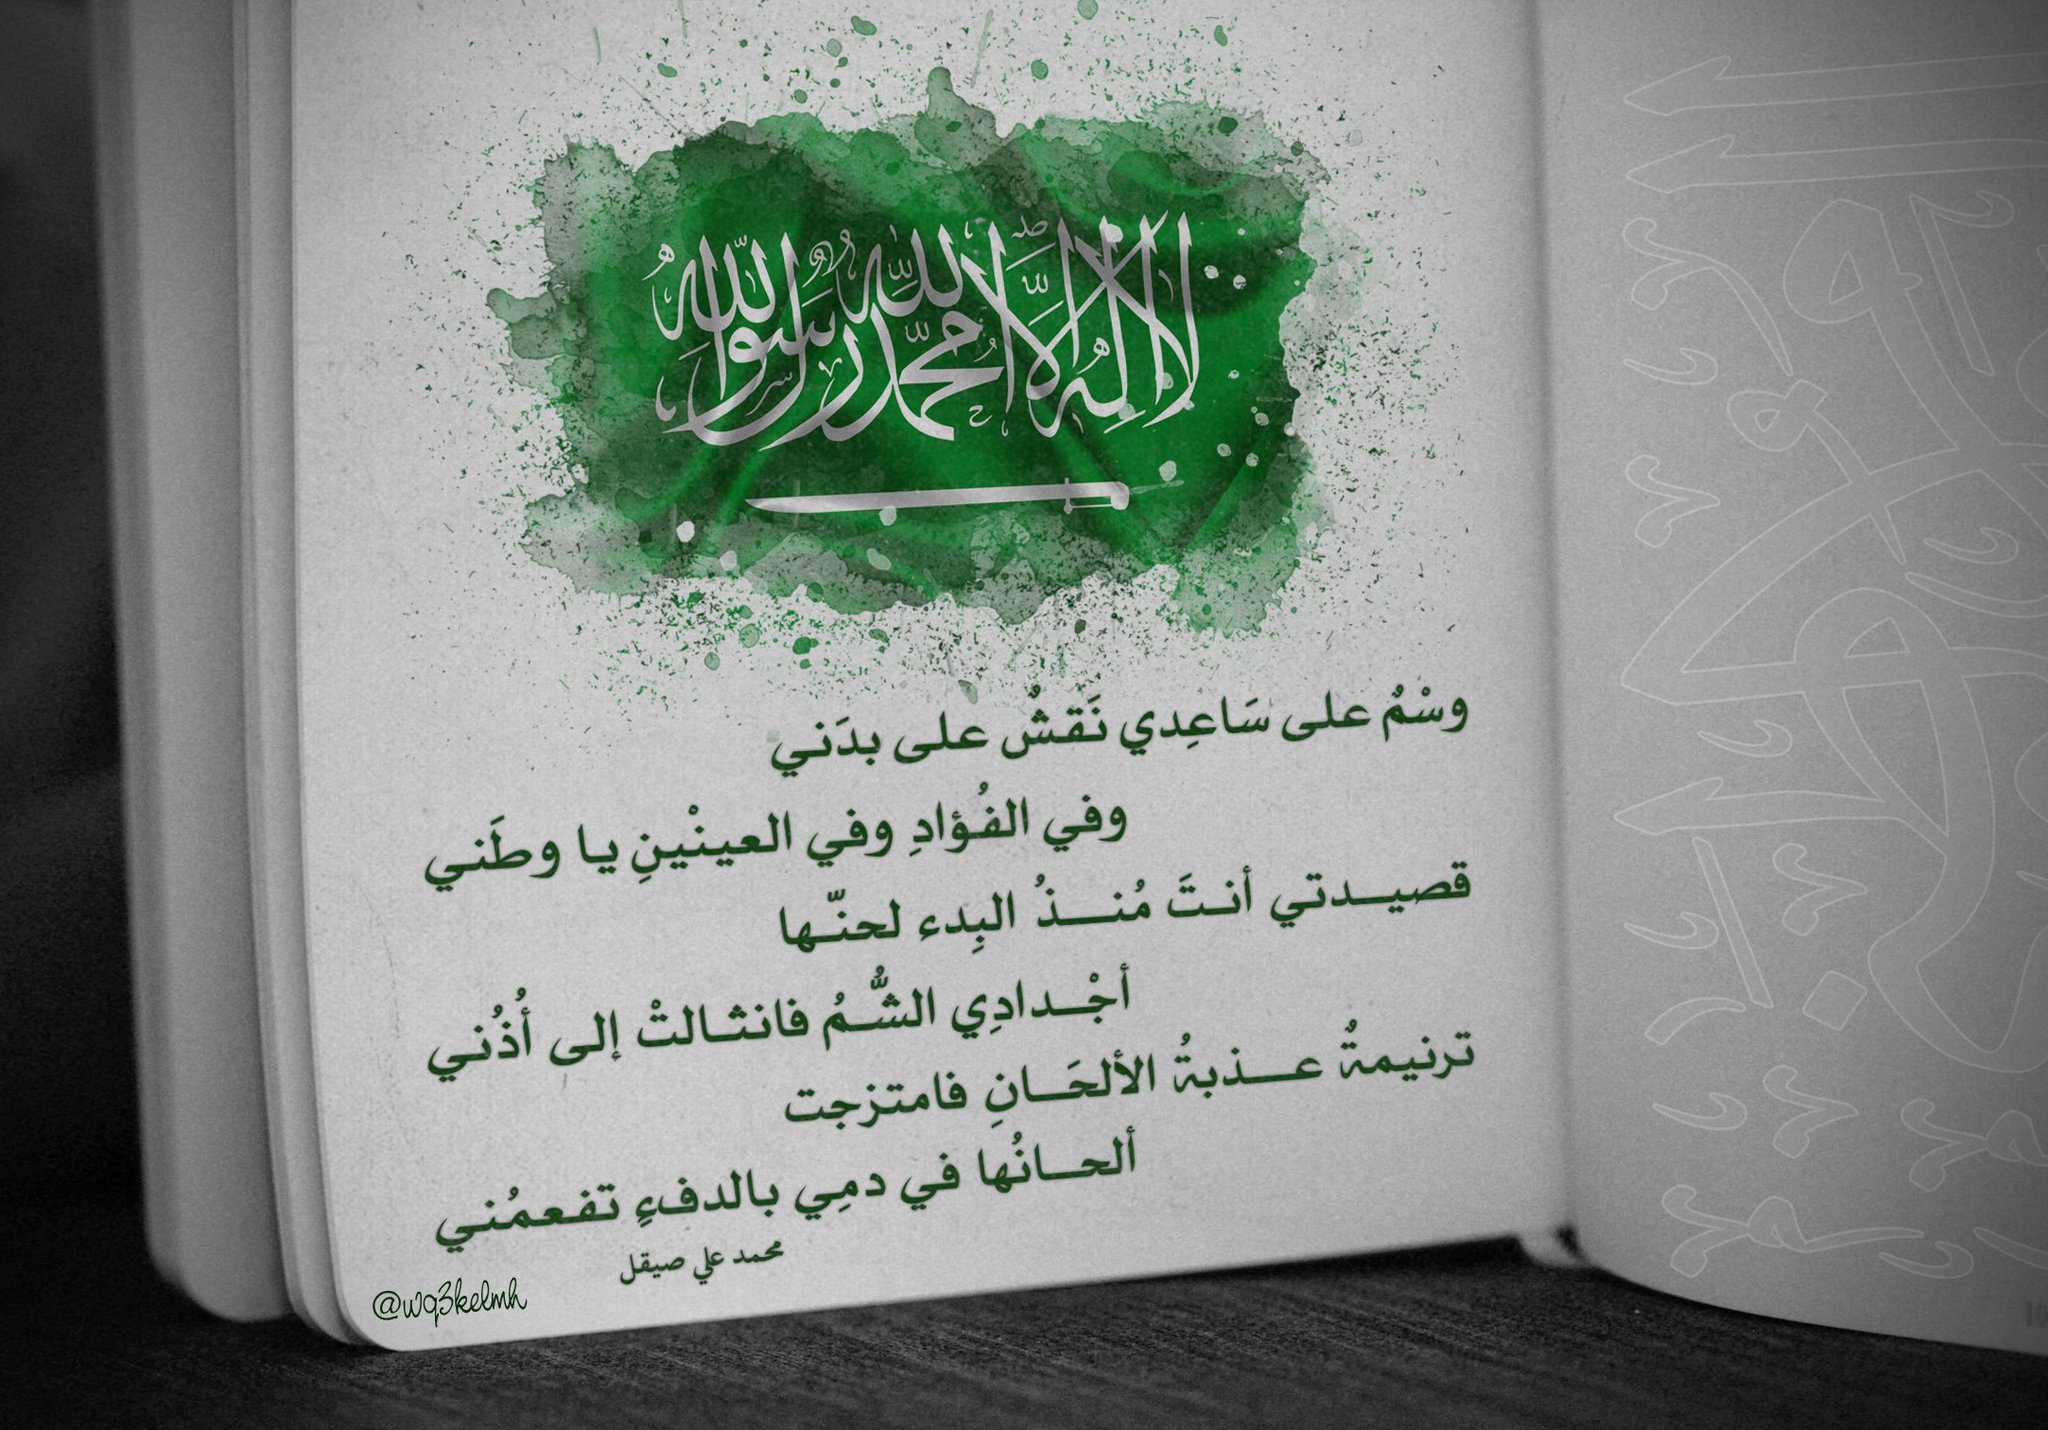 لا إله إلا الله محمد رسول الله
وسْمٌ على سَاعِدي نَقشٌ على بدَني
وفي الفُؤادِ وفي العينْينِ يا وطَني
قصيدتي أنتَ مُنذُ البِدء لحنّها
أجْدادِي الشُّمُ فانثالتْ إلى أُذُني
ترنيمةٌ عذبةُ الألحَانِ فامتزجت
ألحانُها في دمِي بالدفءِ تفعمُني
محمد علي صيقل
@wq3kelmh